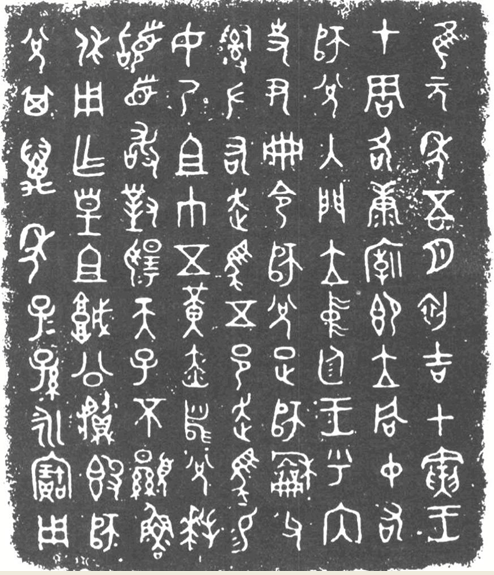 隹元年五月初吉甲寅王
才周各康廟即立同中右
師兌入門立中廷王乎內
史尹冊令師兌疋師龢父
𤔲左右走馬五邑走馬易
女乃且巾五黃赤舄兌拜
𩒨首敢對揚天子不顯魯
休用乍皇且城公䵼簋師
兌其萬年子子孫孫永寶用